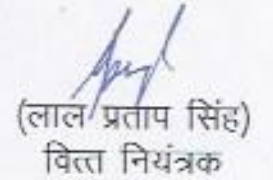 (लाल प्रताप सिंह)
वित्त नियंत्रक